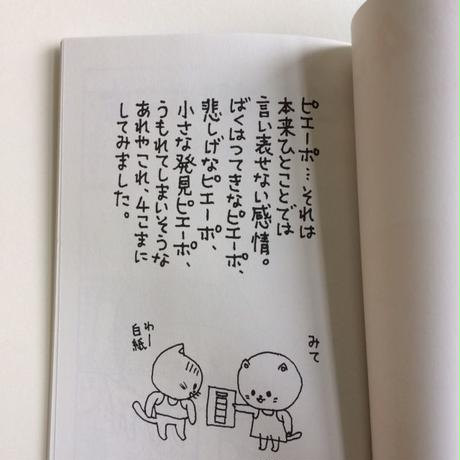 ピエーポ…それは
本来ひとことでは
言い表せない感情。
ばくはつてきなピエーポ、
悲しげなピエーポ、
小さな発見ピエーポ、
うもれてしまいそうな
あれやこれ、4こまに
してみました。
みて
わー
白紙